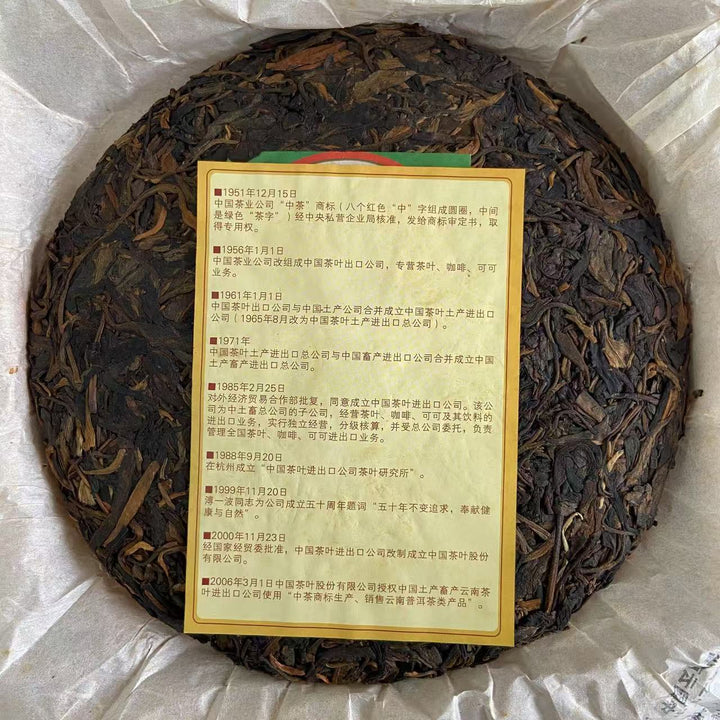 ■1951年12月15日
中国茶业公司“中茶”商标（八个红色“中”字组成圆圈，中间
是绿色“茶字”）经中央私营企业局核准，发给商标审定书，取
得专用权。
■1956年1月1日
中国茶业公司改组成中国茶叶出口公司，专营茶叶、咖啡、可可
业务。
■1961年1月1日
中国茶叶出口公司与中国土产公司合并成立中国茶叶土产进出口
公司（1965年8月改为中国茶叶土产进出口总公司）。
■1971年
中国茶叶土产进出口总公司与中国畜产进出口公司合并成立中国
土产畜产进出口总公司。
■1985年2月25日
对外经济贸易合作部批复，同意成立中国茶叶进出口公司。该公
司为中土畜总公司的子公司，经营茶叶、咖啡、可可及其饮料的
进出口业务，实行独立经营，分级核算，并受总公司委托，负责
管理全国茶叶、咖啡、可可进出口业务。
■1988年9月20日
在杭州成立“中国茶叶进出口公司茶叶研究所”。
■1999年11月20日
溥一波同志为公司成立五十周年题词“五十年不变追求，奉献健
康与自然”。
■2000年11月23日
经国家经贸委批准，中国茶叶进出口公司改制成立中国茶叶股份
有限公司。
■2006年3月1日中国茶叶股份有限公司授权中国土产畜产云南茶
叶进出口公司使用“中茶商标生产、销售云南普洱茶类产品”。